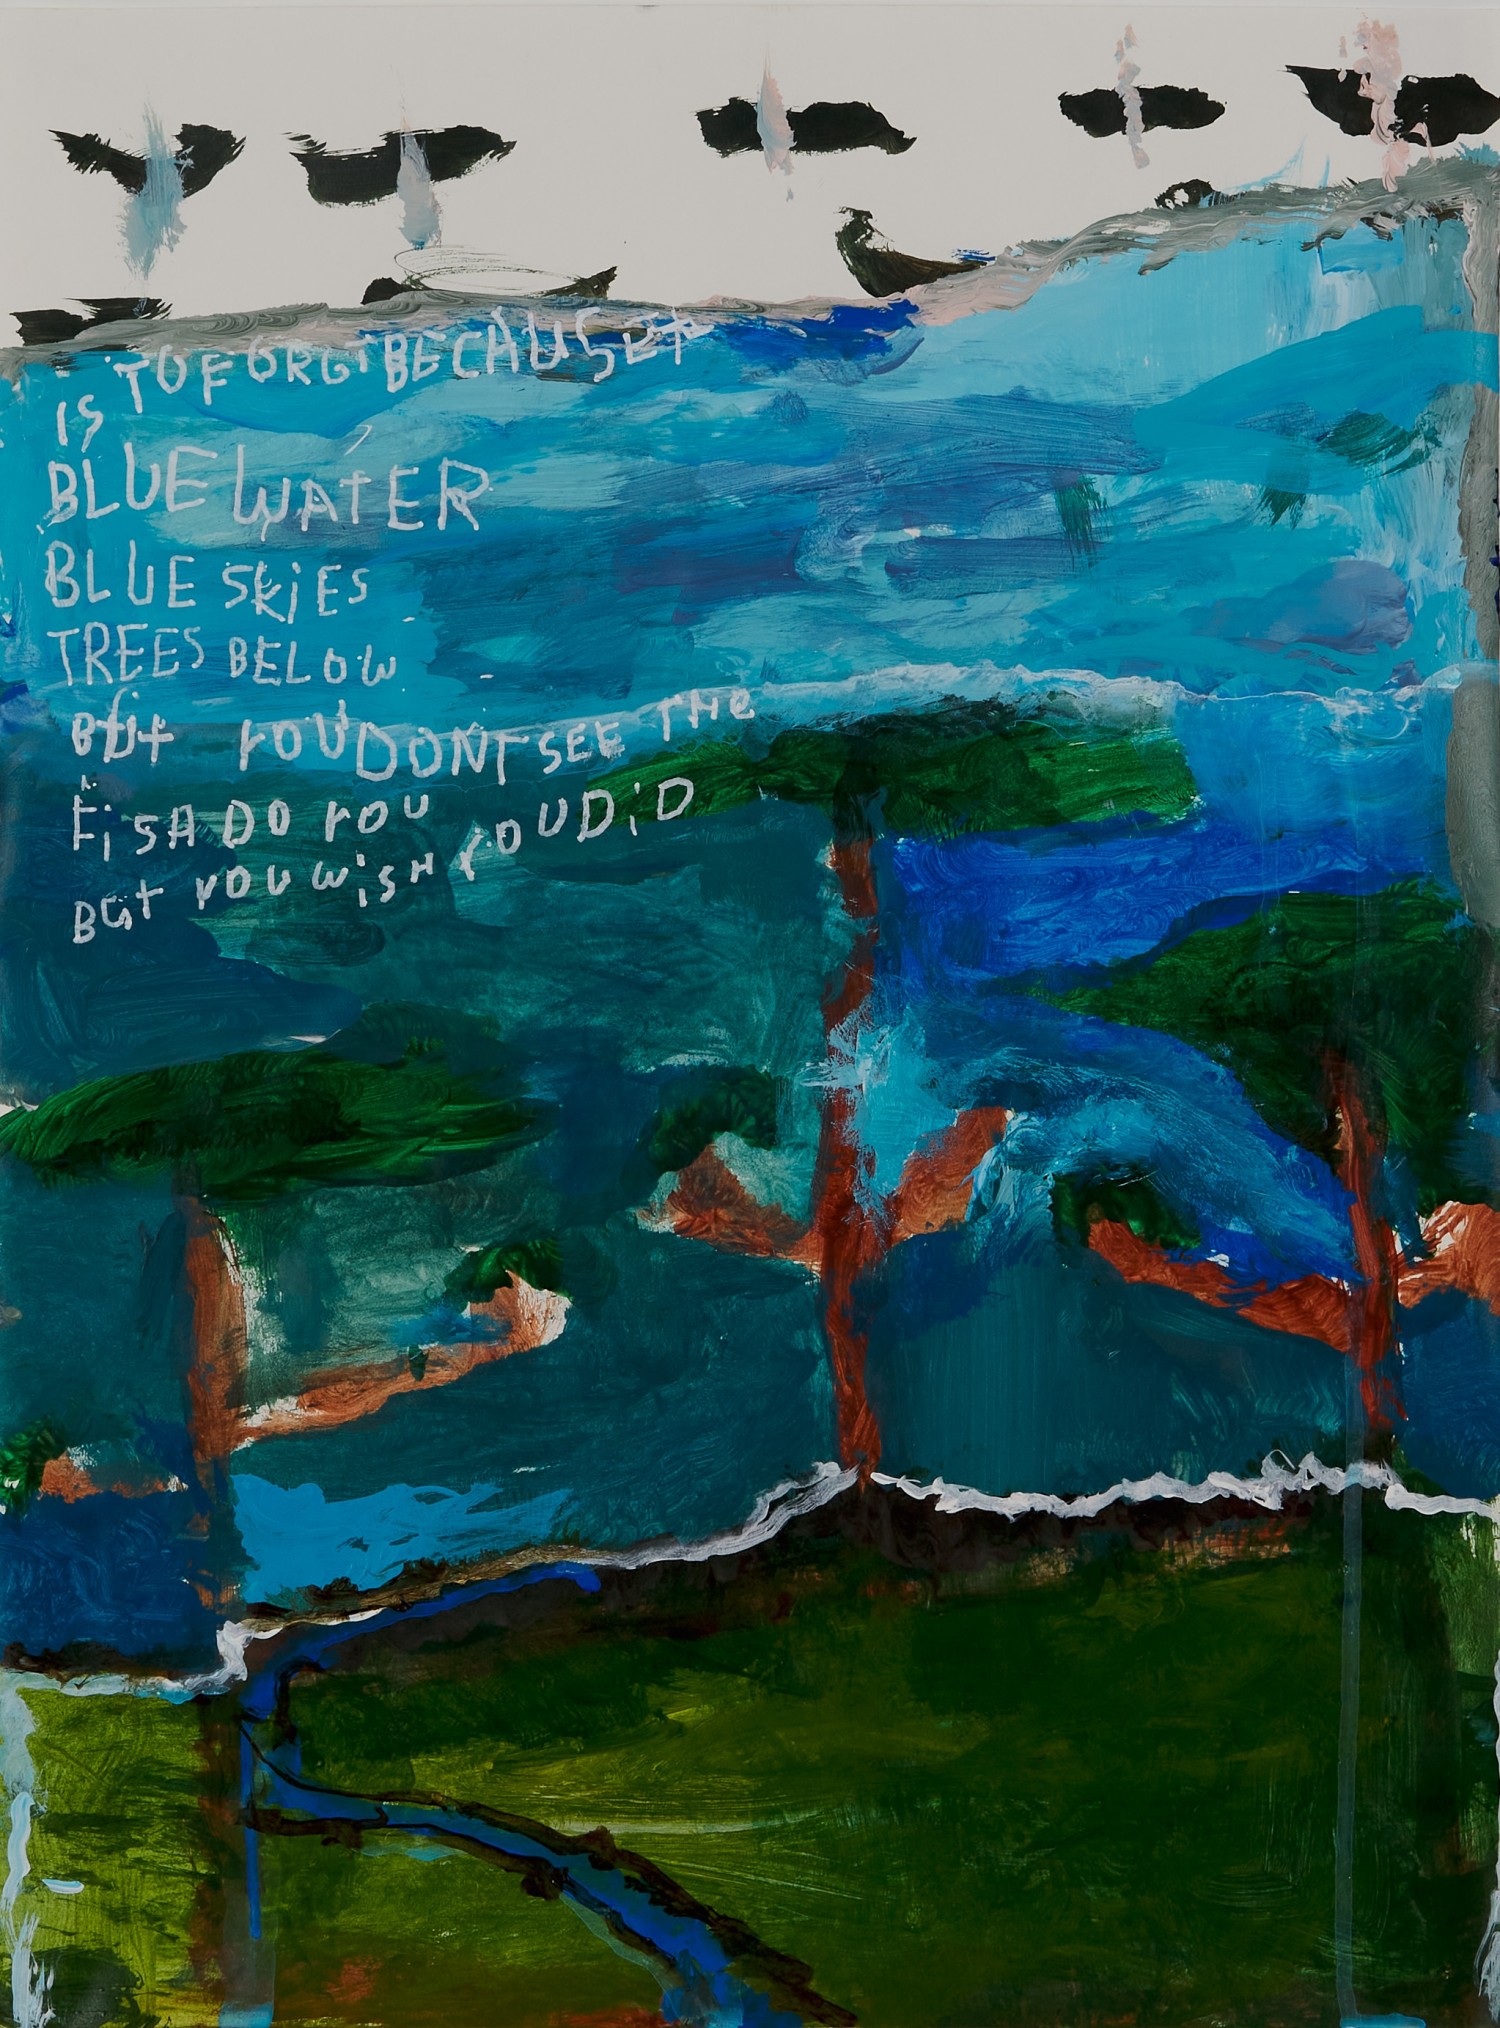 IS TO FORGT BECAUSE IT
BLUE WATER
BLUE SKIES
TREES BELOW
BUT YOU DONT SEE THE
FISH DO YOU
BUT YOU WISH YOU DID